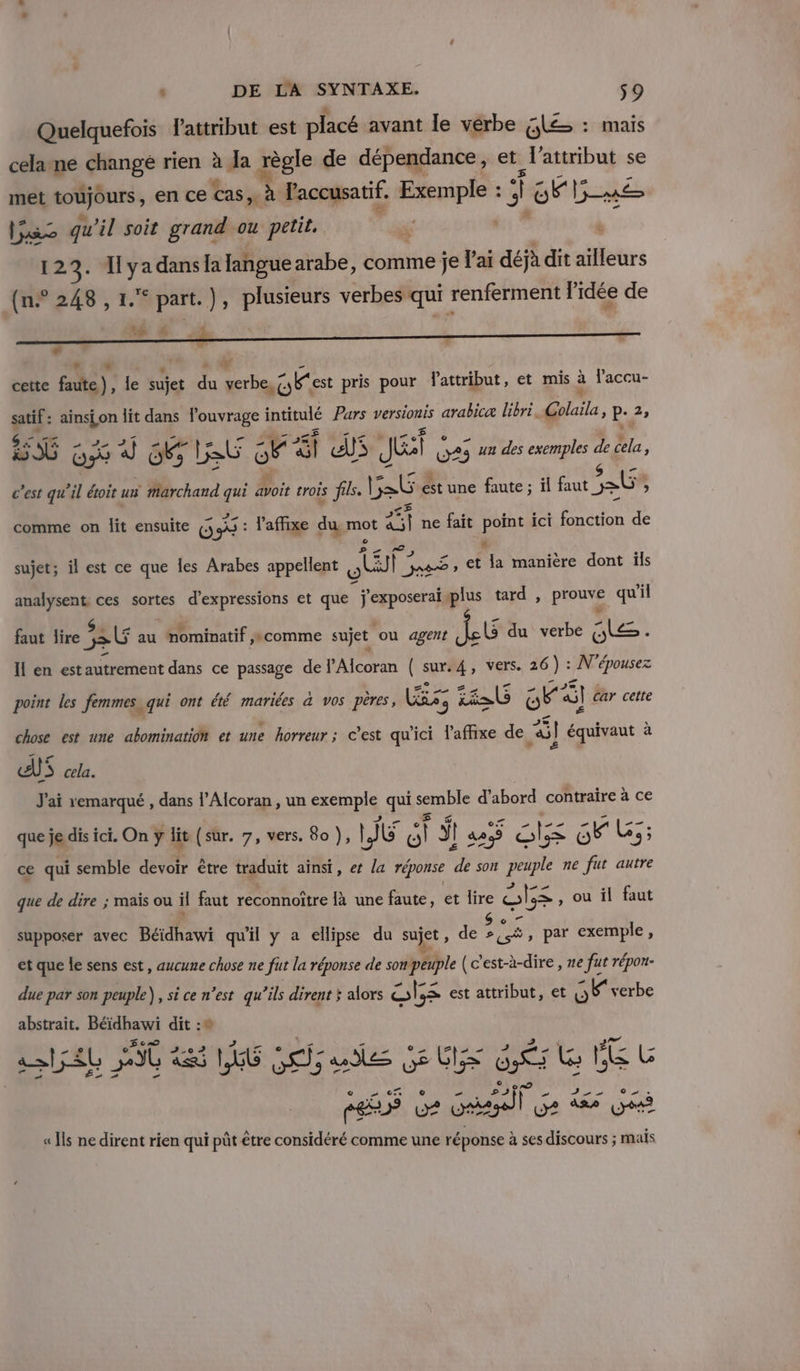 DE LA SYNTAXE. 59
Quelquefois l'attribut est placé avant le verbe كَانَ : mais
cela ne change rien à la règle de dépendance, et l'attribut se
met toujours, en ce cas, à l'accusatif. Exemple : كَبِيرًا كَانَ أَوْ
صَغِيرًا qu'il soit grand ou petit.
123. Il y a dans la langue arabe, comme je l'ai déjà dit ailleurs
(n.° 248, 1.re part.), plusieurs verbes qui renferment l'idée de
cette faute), le sujet du verbe كَانَ est pris pour l'attribut, et mis à l'accu-
satif : ainsi on lit dans l'ouvrage intitulé Pars versionis arabicæ libri Colaila, p. 2,
وَمِنْ أَمْثَالِ ذَلِكَ أَنَّهُ كَانَ تَاجِرًا وَكَانَ لَهُ بَنُونَ ثَلَاثَةً un des exemples de cela,
c'est qu'il étoit un marchand qui avoit trois fils. تَاجِرًا est une faute ; il faut تَاجِرٌ,
comme on lit ensuite بَنُونَ : l'affixe du mot أَنَّهُ ne fait point ici fonction de
sujet; il est ce que les Arabes appellent ضَمِيرُ الشَّأْنِ, et la manière dont ils
analysent ces sortes d'expressions et que j'exposerai plus tard, prouve qu'il
faut lire تَاجِرٌ au nominatif, comme sujet ou agent فَاعِلٌ du verbe كَانَ.
Il en est autrement dans ce passage de l'Alcoran ( sur. 4, vers. 26) : N'épousez
point les femmes qui ont été mariées à vos pères, إِنَّهُ كَانَ فَاحِشَةً وَمَقْتًا car cette
chose est une abomination et une horreur ; c'est qu'ici l'affixe de إِنَّهُ équivaut à
ذَلِكَ cela.
J'ai remarqué, dans l'Alcoran, un exemple qui semble d'abord contraire à ce
que je dis ici. On y lit (sur. 7, vers. 80), وَمَا كَانَ جَوَابَ قَوْمِهِ إِلَّا أَنْ قَالُوا ;
ce qui semble devoir être traduit ainsi, et la réponse de son peuple ne fut autre
que de dire ; mais ou il faut reconnoître là une faute, et lire جَوَابُ, ou il faut
supposer avec Béidhawi qu'il y a ellipse du sujet, de شَيْءٌ, par exemple,
et que le sens est, aucune chose ne fut la réponse de son peuple ( c'est-à-dire, ne fut répon-
due par son peuple), si ce n'est qu'ils dirent ; alors جَوَابَ est attribut, et كَانَ verbe
abstrait. Béïdhawi dit :
مَا جَاؤُا بِمَا يَكُونُ جَوَابًا عَنْ كَلَامِهِ وَلَكِنْ قَابَلُوا نُصْحَهُ بِالْأَمْرِ بِإِخْرَاجِهِ
فِيمَنْ مَعَهُ مِنَ الْمُؤْمِنِينَ مِنْ قَرْيَتِهِمْ
« Ils ne dirent rien qui pût être considéré comme une réponse à ses discours ; mais